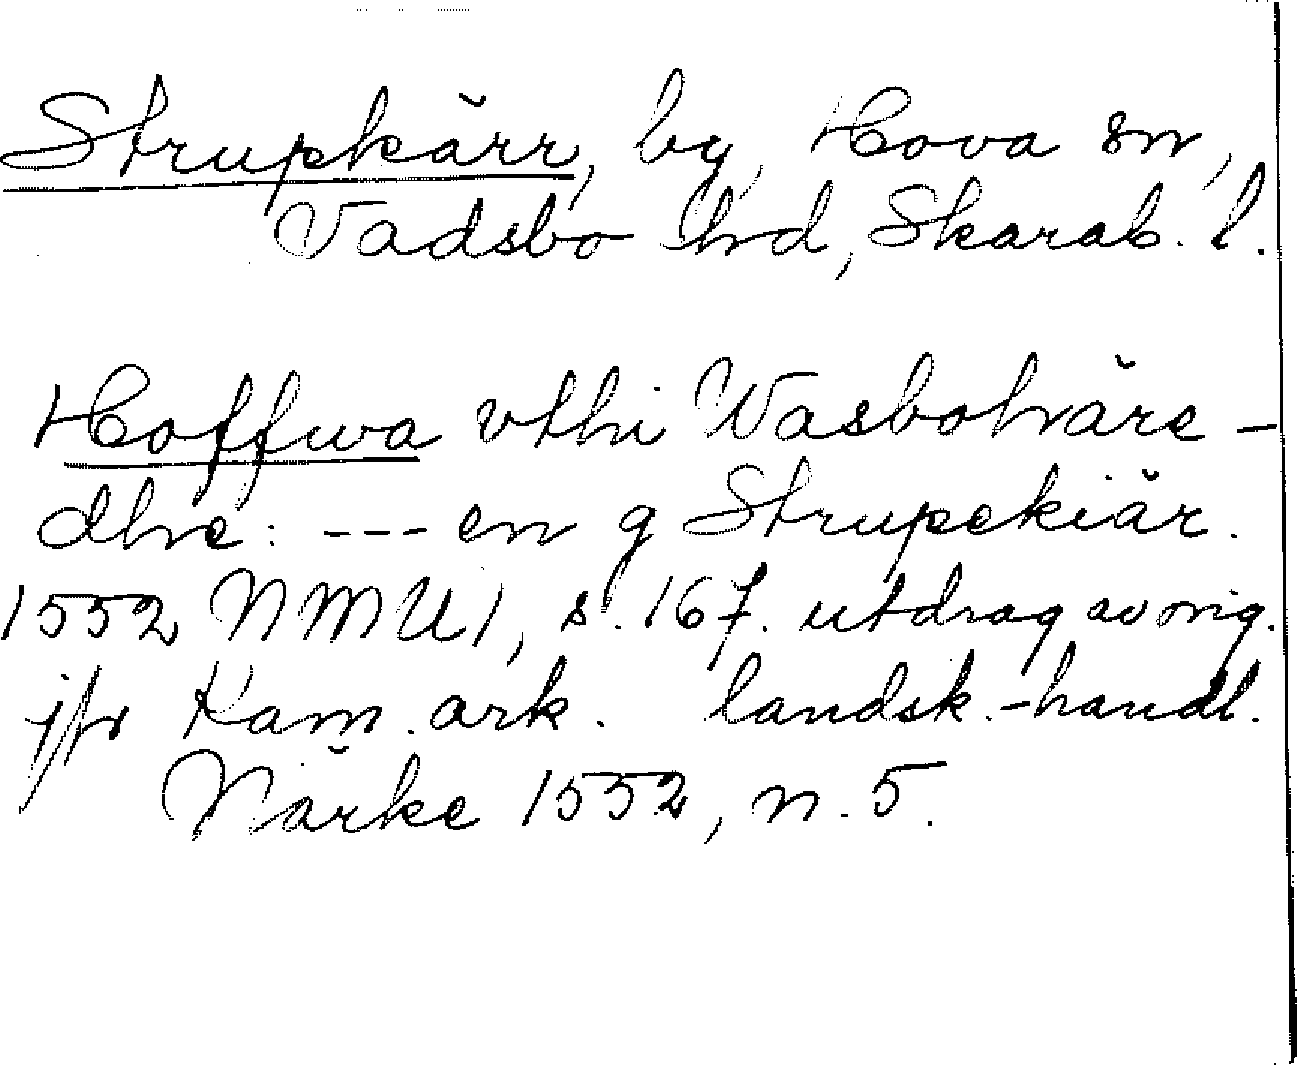 Strupkärr, by, Hova sn,
Vadsbo hd, Skarab. l.
Hoffwa vthi Wasbohäre-
dhe: --- en g Strupekiär.
1552 NMU1, s. 167. utdrag av orig.
jfr Kam. ark. landsk.-handl.
Närke 1552, n. 5.